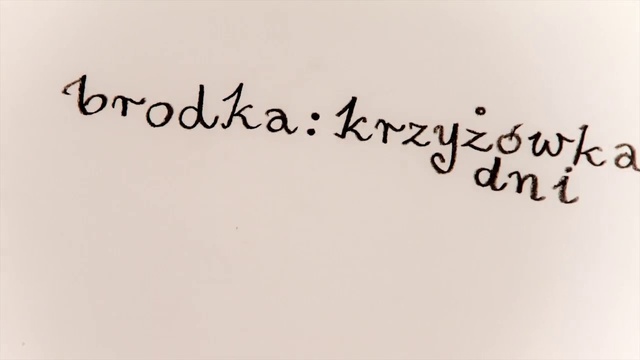 brodka: krzyżówka
dni